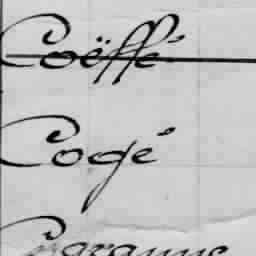 Coëffé
Cogé